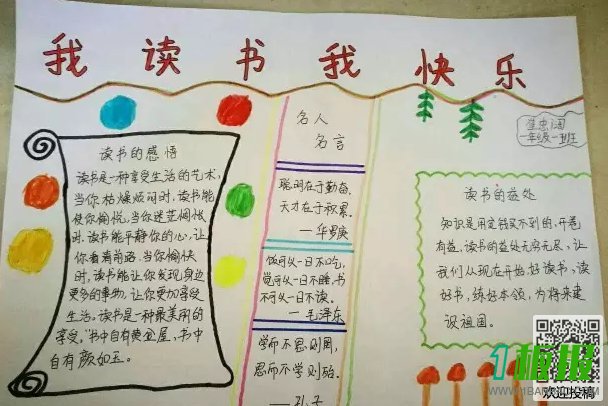 我读书我快乐
读书的感悟
读书是一种享受生活的艺术,
当你枯燥烦闷时,读书能
使你愉悦,当你迷茫惆怅
时,读书能平静你的心,让
你看清前路,当你愉快
时,读书能让你发现身边
更多的事物,让你更加享受
生活。读书是一种最美丽的
享受。"书中自有黄金屋,书中
自有颜如玉。
名人
名言
聪明在于勤奋,
天才在于积累。
—华罗庚
饭可以一日不吃,
觉可以一日不睡,书
不可以一日不读。
—毛泽东
学而不思则罔,
思而不学则殆。
—孔子
一年级一班
读书的益处
知识是用金钱买不到的,开卷
有益,读书的益处无穷无尽,让
我们从现在开始好读书,读
好书,练好本领,为将来建
设祖国。
1板报
欢迎投稿